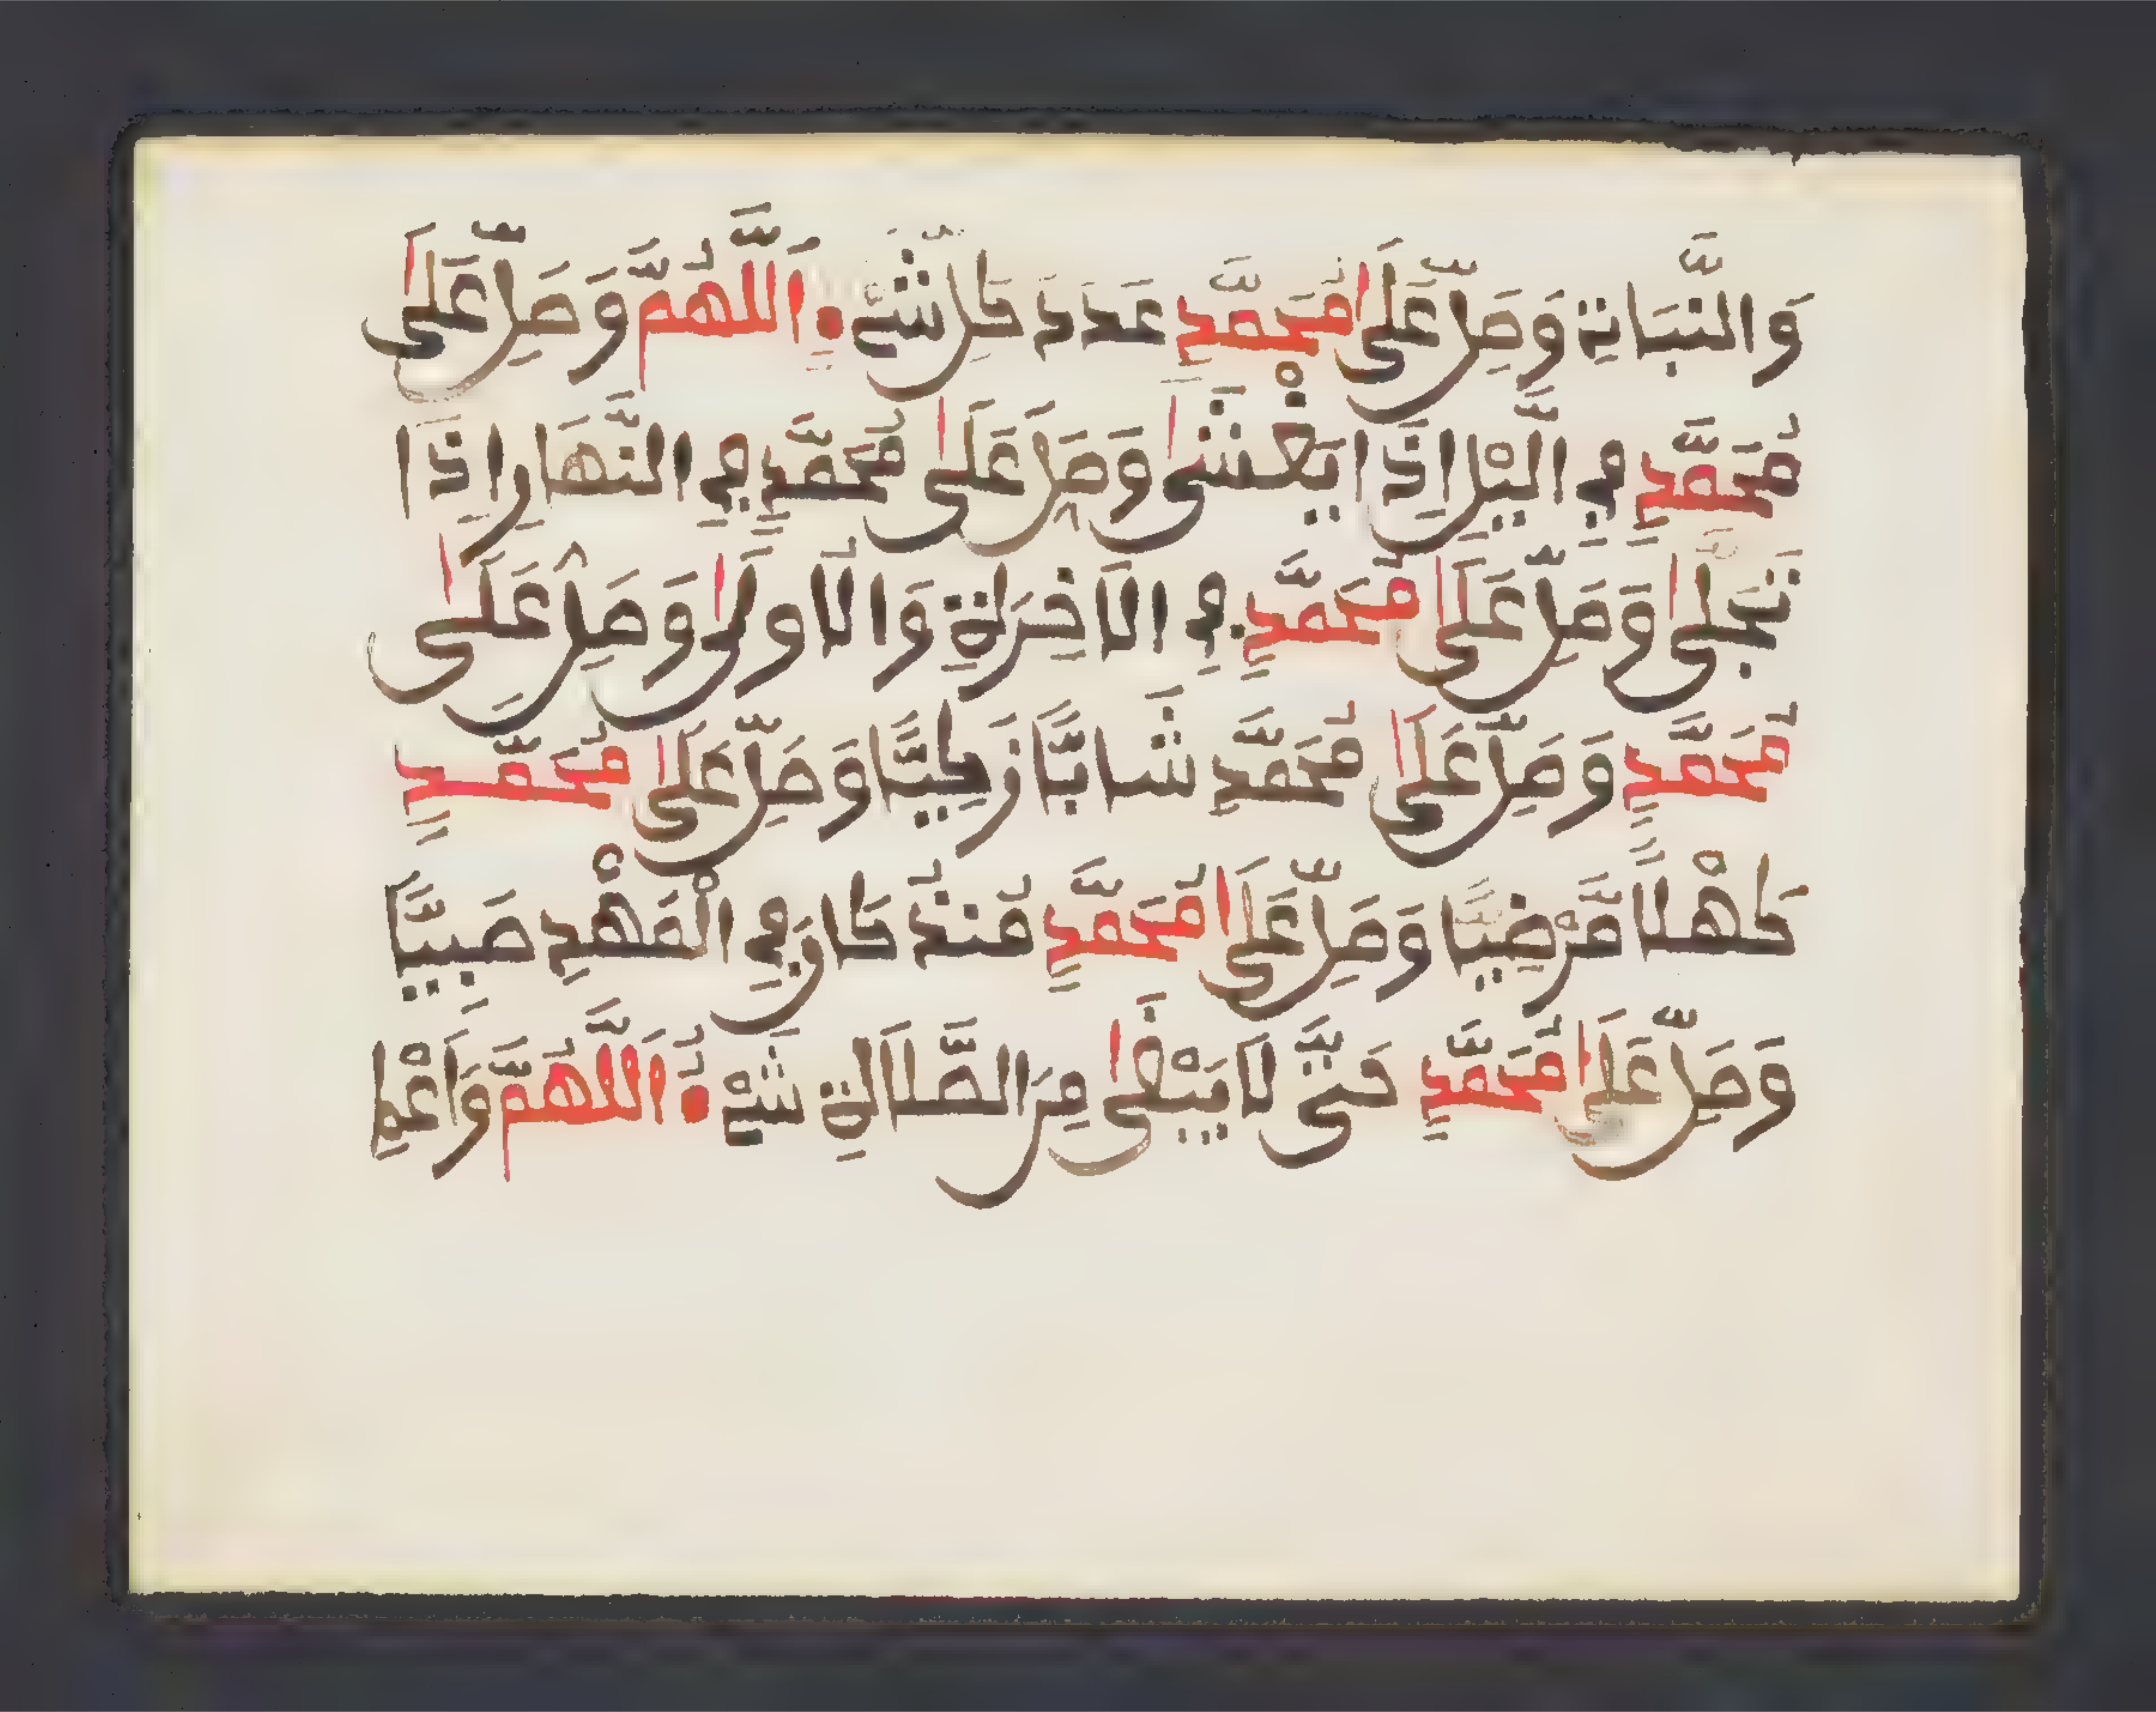 وَالنَّبَاتِ وَصَلِّ عَلَىٰ مُحَمَّدٍ عَدَدَ كُلِّ شَيْءٍ اَللَّهُمَّ وَصَلِّ عَلَىٰ
مُحَمَّدٍ فِي الَّيْلِ اِذَا يَغْشَىٰ وَصَلِّ عَلَىٰ مُحَمَّدٍ فِي النَّهَارِ اِذَا
تَجَلَّىٰ وَصَلِّ عَلَىٰ مُحَمَّدٍ فِي الَاخِرَةِ وَالُاولَىٰ وَصَلِّ عَلَىٰ
مُحَمَّدٍ وَصَلِّ عَلَىٰ مُحَمَّدٍ شَابًّا زَكِيًّا وَصَلِّ عَلَىٰ مُحَمَّدٍ
كَهْلًا مَّرْضِيًّا وَصَلِّ عَلَىٰ مُحَمَّدٍ مُنْذُ كَانَ فِي الْمَهْدِ صَبِيًّا
وَصَلِّ عَلَىٰ مُحَمَّدٍ حَتَّى لَا يَبْقَىٰ مِنَ الصَّلَاةِ شَيْءٌ اَللَّهُمَّ وَاَعْطِ